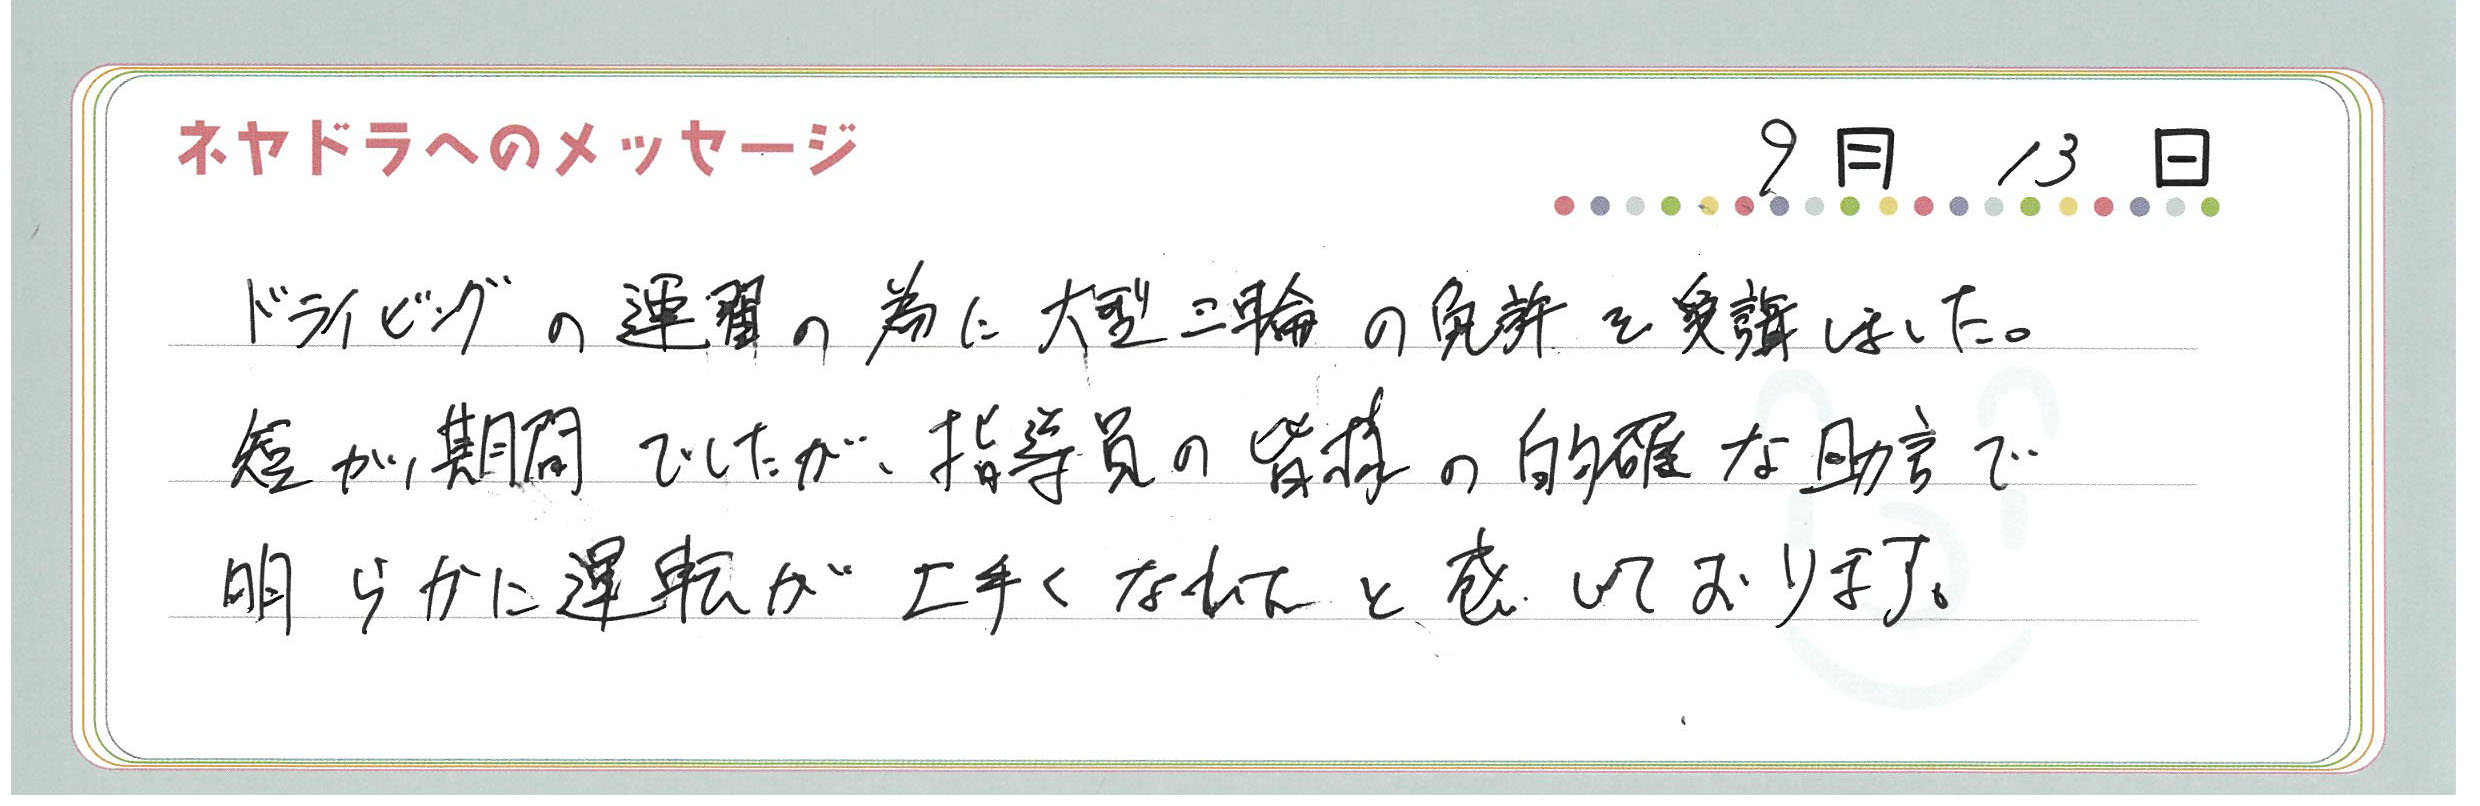 ネヤドラへのメッセージ
9月 13日
ドライビングの運習の為に大型二輪の免許を受講しました。
短かい期間でしたが、指導員の皆様の的確な助言で
明らかに運転が上手くなれたと感じております。